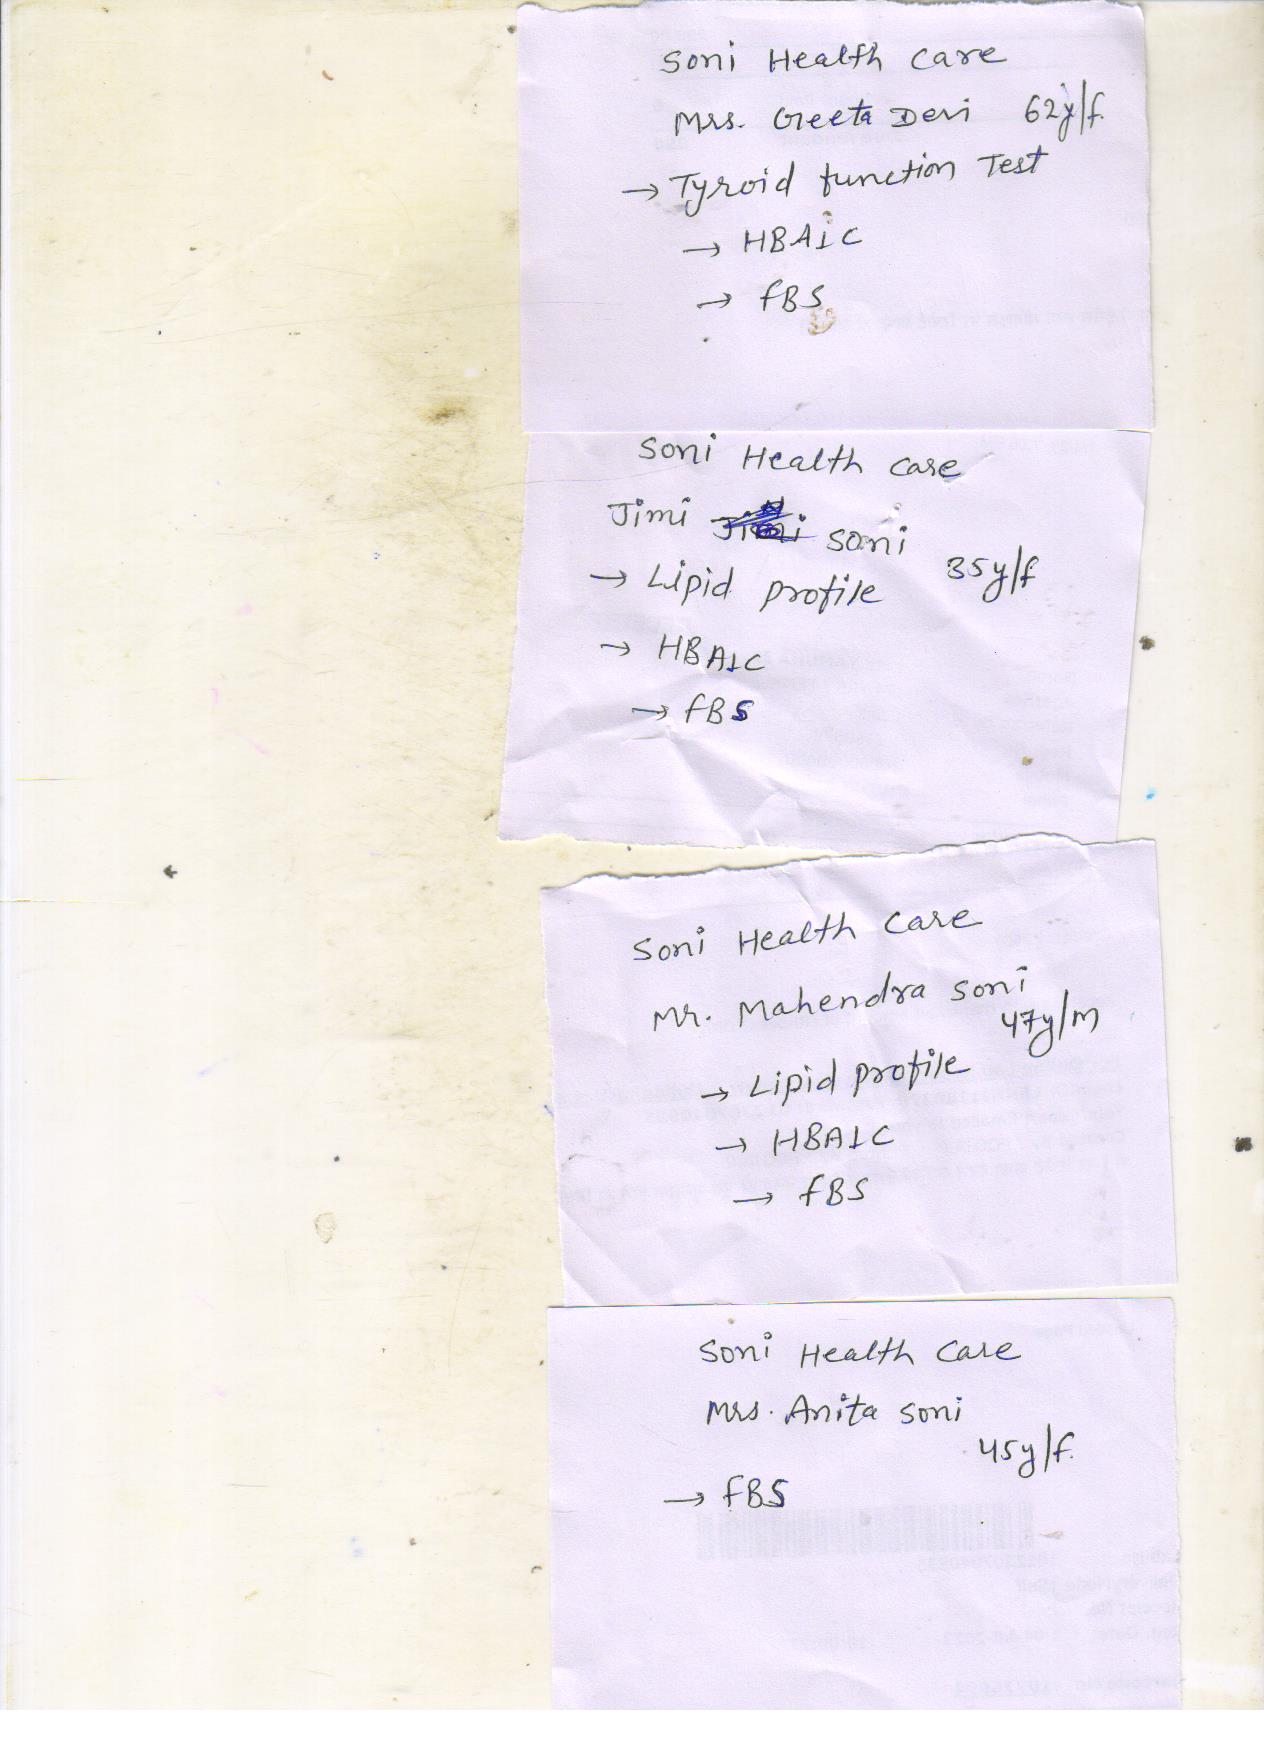 Soni Health Care
Mrs. Geeta Devi 62y/f.
→ Tyroid function Test
→ HBA1C
→ fBS
Soni Health Care
Jimi Soni
35y/f
→ Lipid profile
→ HBA1C
→ fBS
Soni Health Care
Mr. Mahendra Soni
47y/m
→ Lipid profile
→ HBA1C
→ fBS
Soni Health Care
Mrs. Anita Soni
45y/f.
→ fBS